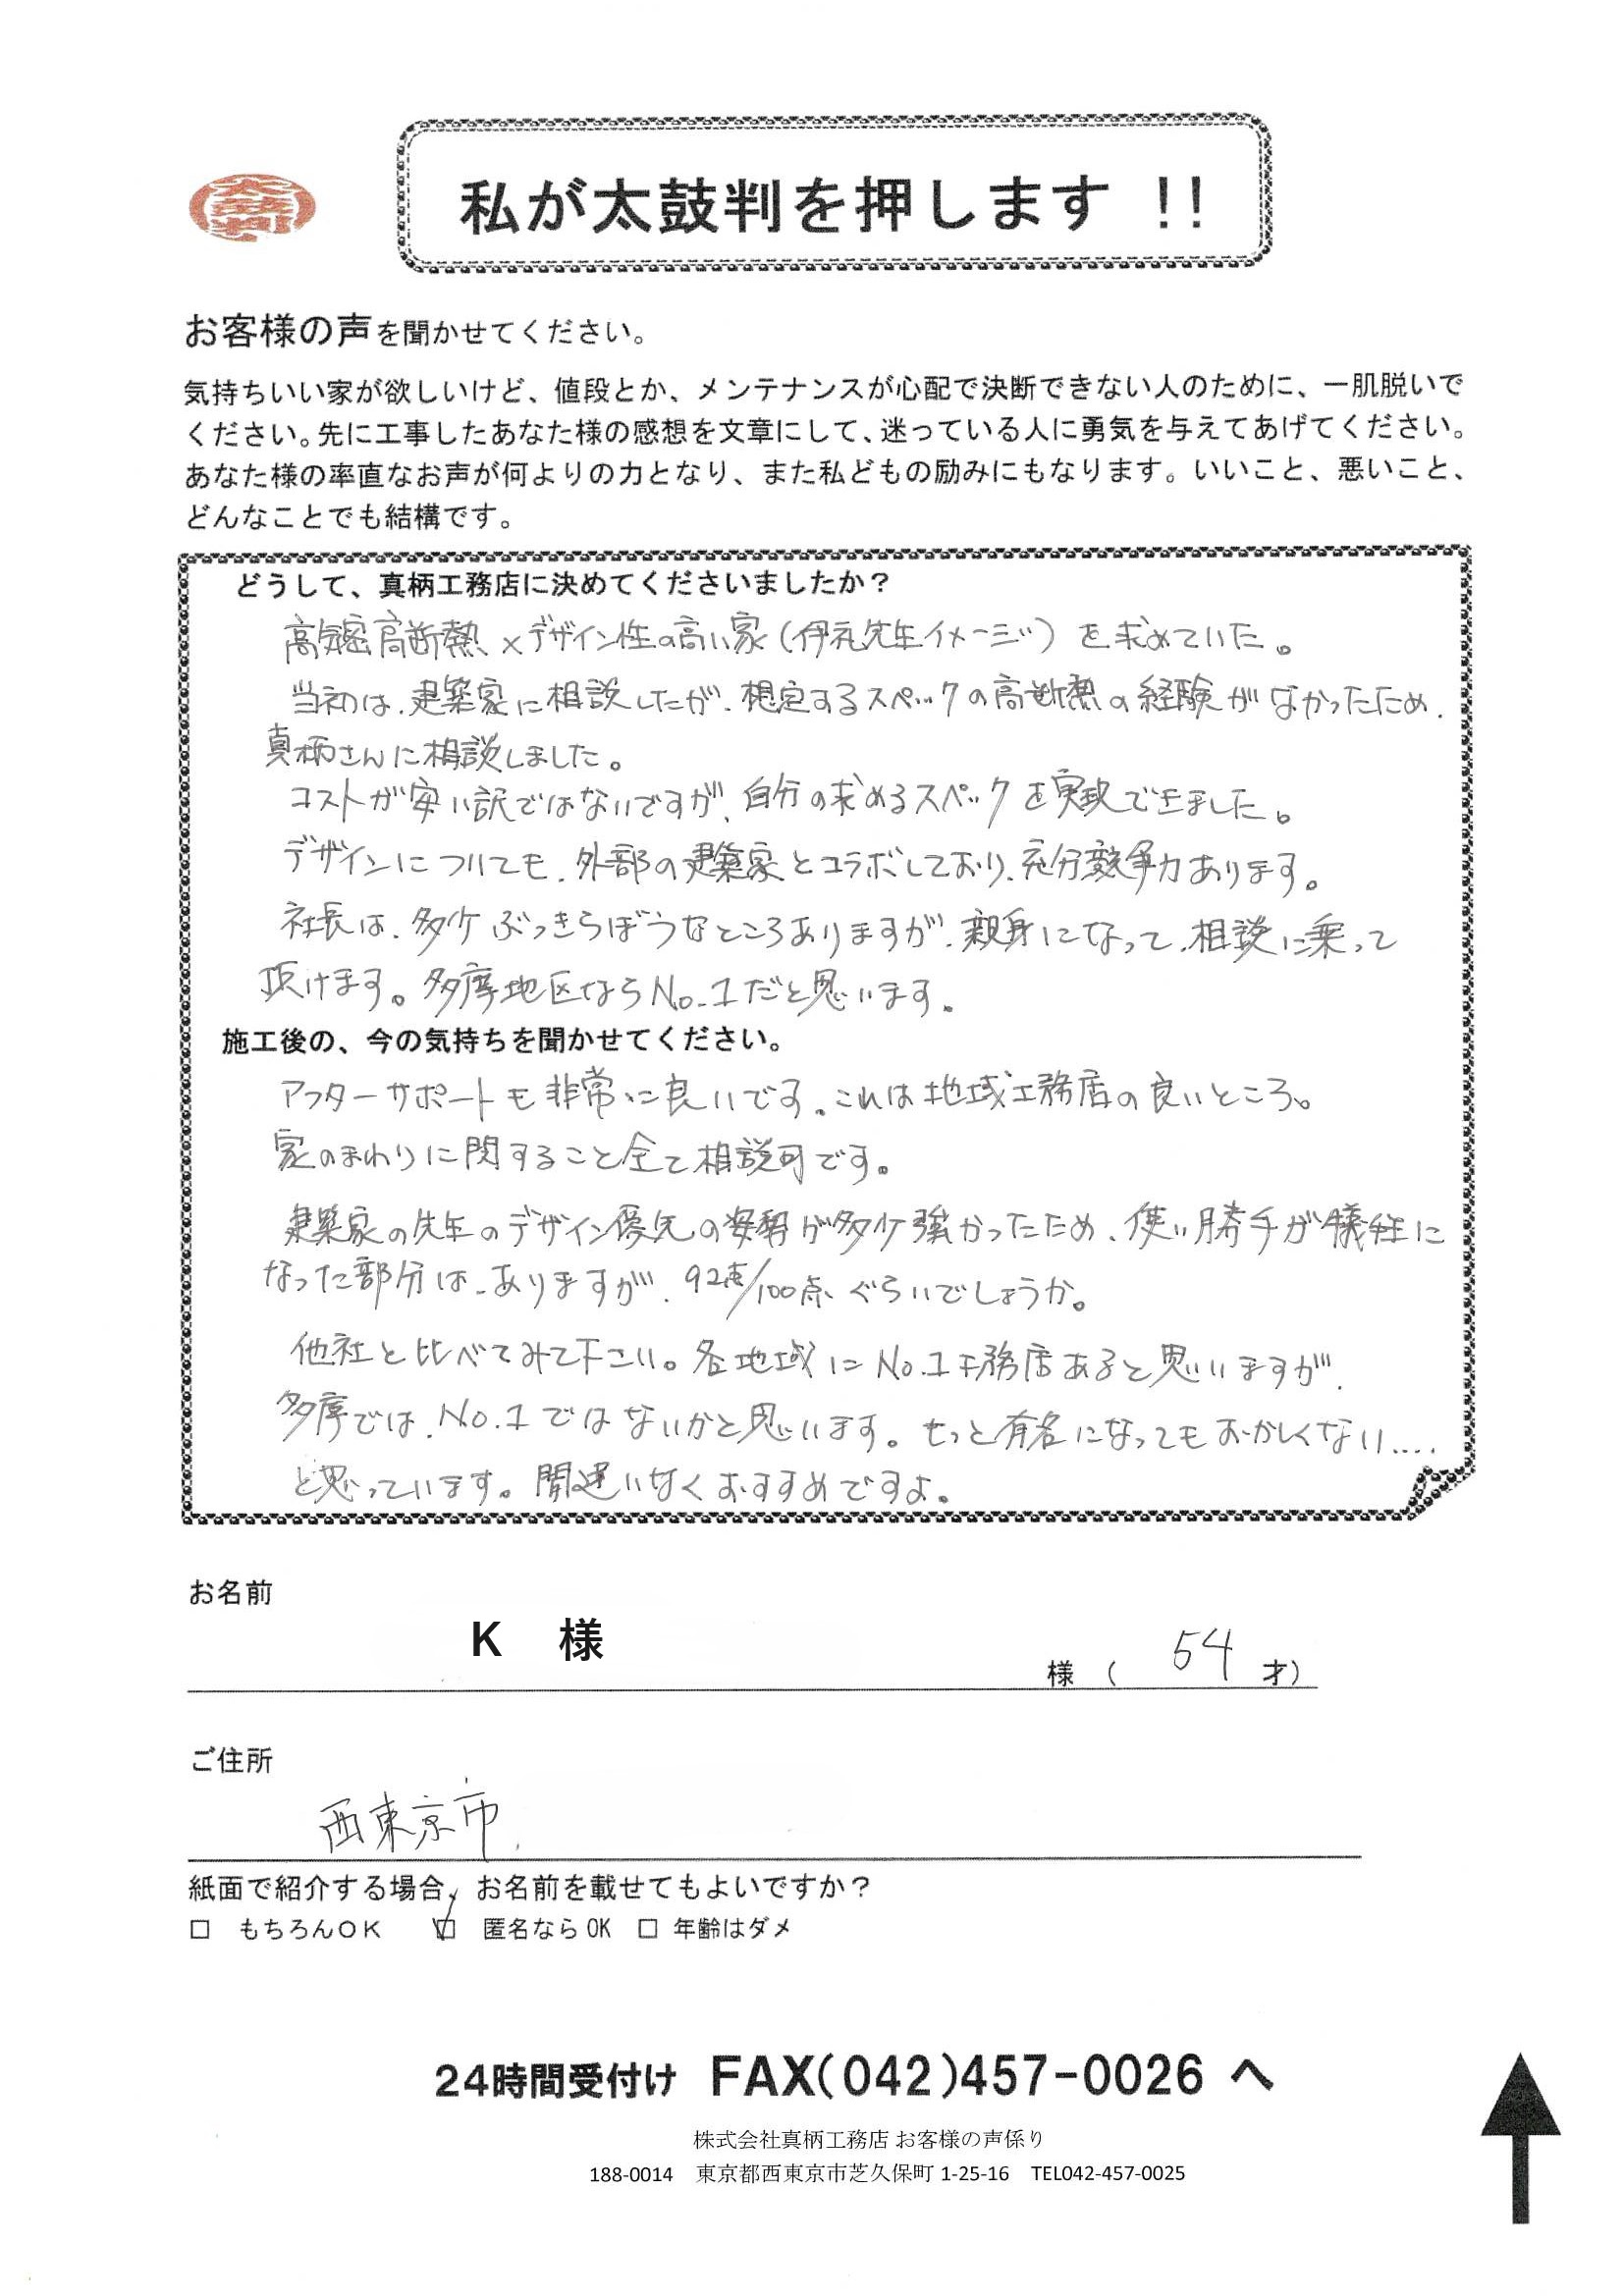 太鼓判
私が太鼓判を押します !!
お客様の声を聞かせてください。
気持ちいい家が欲しいけど、値段とか、メンテナンスが心配で決断できない人のために、一肌脱いで
ください。先に工事したあなた様の感想を文章にして、迷っている人に勇気を与えてあげてください。
あなた様の率直なお声が何よりの力となり、また私どもの励みにもなります。いいこと、悪いこと、
どんなことでも結構です。
どうして、真柄工務店に決めてくださいましたか？
高気密高断熱×デザイン性の高い家（伊礼先生イメージ）を求めていた。
当初は、建築家に相談したが、想定するスペックの高断熱の経験がなかったため、
真柄さんに相談しました。
コストが安い訳ではないですが、自分の求めるスペックを実現できました。
デザインについても、外部の建築家とコラボしており、充分競争力あります。
社長は、多少ぶっきらぼうなところありますが、親身になって、相談に乗って
頂けます。多摩地区ならNo.1だと思います。
施工後の、今の気持ちを聞かせてください。
アフターサポートも非常に良いです。これは地域工務店の良いところ。
家のまわりに関すること全て相談可です。
建築家の先生のデザイン優先の姿勢が多少強かったため、使い勝手が犠牲に
なった部分は、ありますが、92点/100点ぐらいでしょうか。
他社と比べてみて下さい。各地域にNo.1工務店あると思いますが、
多摩では、No.1ではないかと思います。もっと有名になってもおかしくない....
と思っています。間違いなくおすすめですよ。
お名前
K 様
様（ 54 才）
ご住所
西東京市
紙面で紹介する場合、お名前を載せてもよいですか？
□ もちろんOK ☑ 匿名なら OK □ 年齢はダメ
24時間受付け FAX(042)457-0026 へ
株式会社真柄工務店 お客様の声係り
188-0014 東京都西東京市芝久保町 1-25-16 TEL042-457-0025